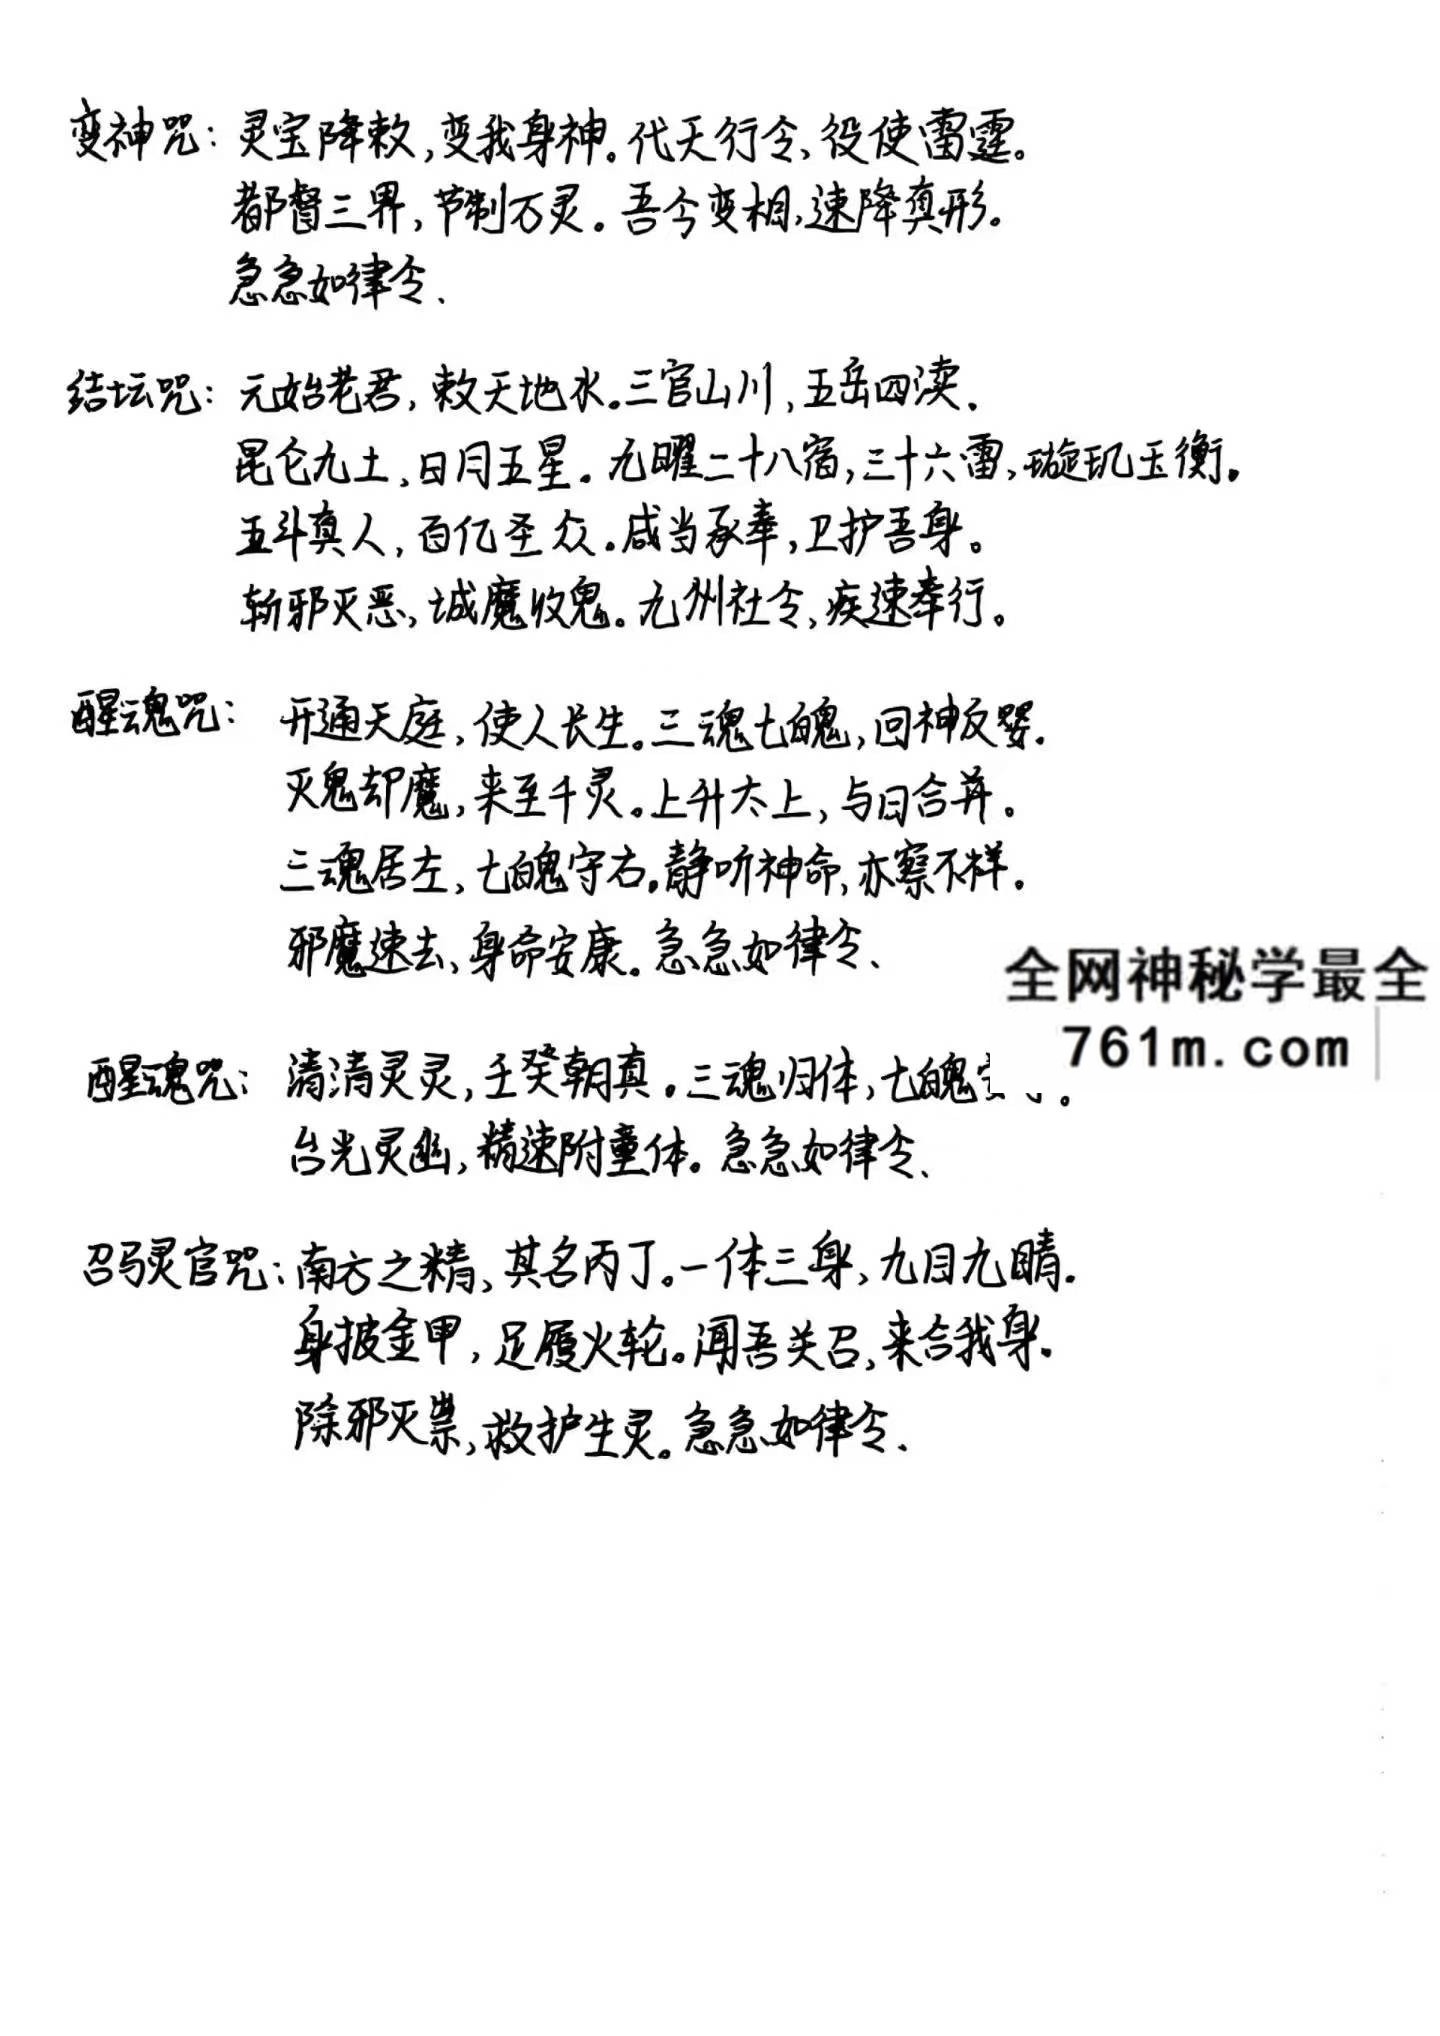 变神咒：灵宝降敕，变我身神。代天行令，役使雷霆。
都督三界，节制万灵。吾今变相，速降真形。
急急如律令、
结坛咒：元始老君，敕天地水。三官山川，五岳四渎.
昆仑九土，日月五星。九曜二十八宿，三十六雷，璇玑玉衡。
五斗真人，百亿圣众。咸当承奉，卫护吾身。
斩邪灭恶，诚魔收鬼。九州社令，疾速奉行。
醒魂咒：开通天庭，使人长生。三魂七魄，回神反婴.
灭鬼却魔，来至千灵。上升太上，与日合并。
三魂居左，七魄守右。静听神命，亦察不样。
邪魔速去，身命安康。急急如律令、
全网神秘学最全
761m.com
醒魂咒：清清灵灵，壬癸朝真。三魂归体，七魄
台光灵幽，精速附童体。急急如律令、
召马灵官咒：南方之精，其名丙丁。一体三身，九目九睛.
身披金甲，足履火轮。闻吾关召，来合我身.
除邪灭祟，救护生灵。急急如律令、